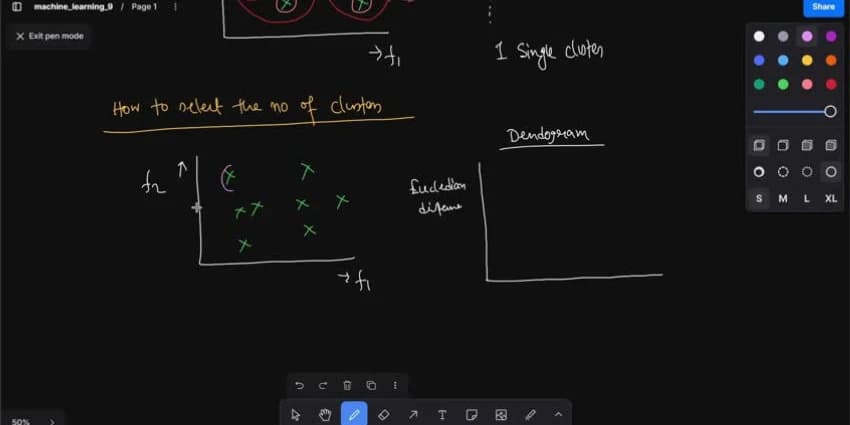 machine_learning_9 / Page 1
Share
Exit pen mode
f1
1 Single cluster
How to select the no of clusters
Dendogram
f2
Eucledian
distance
f1
S M L XL
T
50%